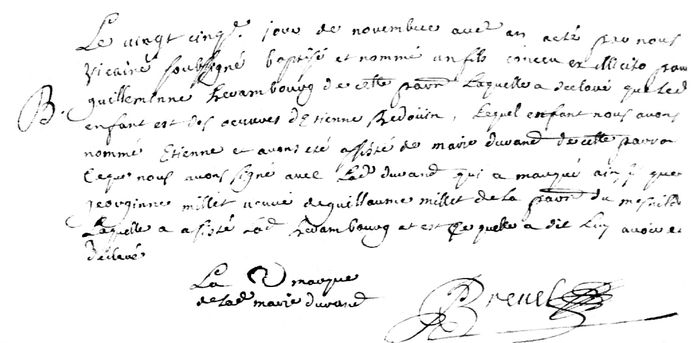 Le vingt cinqe. jour de novembre avec an acté par nous
vicaire soubsigné baptisé et nommé un fils conceu en illicito par
B. guilleminne herambourg de cette parr. laquelle a declaré que led
enfant est des oeuvres d'Etienne Bedouin, lequel enfant nous avons
nommé Etienne et avons été assisté de marie durand de cette parr
ce que nous avons signé avec lad durand qui a marqué ainsy que
georginne millet veuve de guillaume millet de la parr du mesnil
laquelle a assisté lad herambourg et est ce quelle a dit luy avoir été
declaré
La marque
de lad marie durand
Brenet